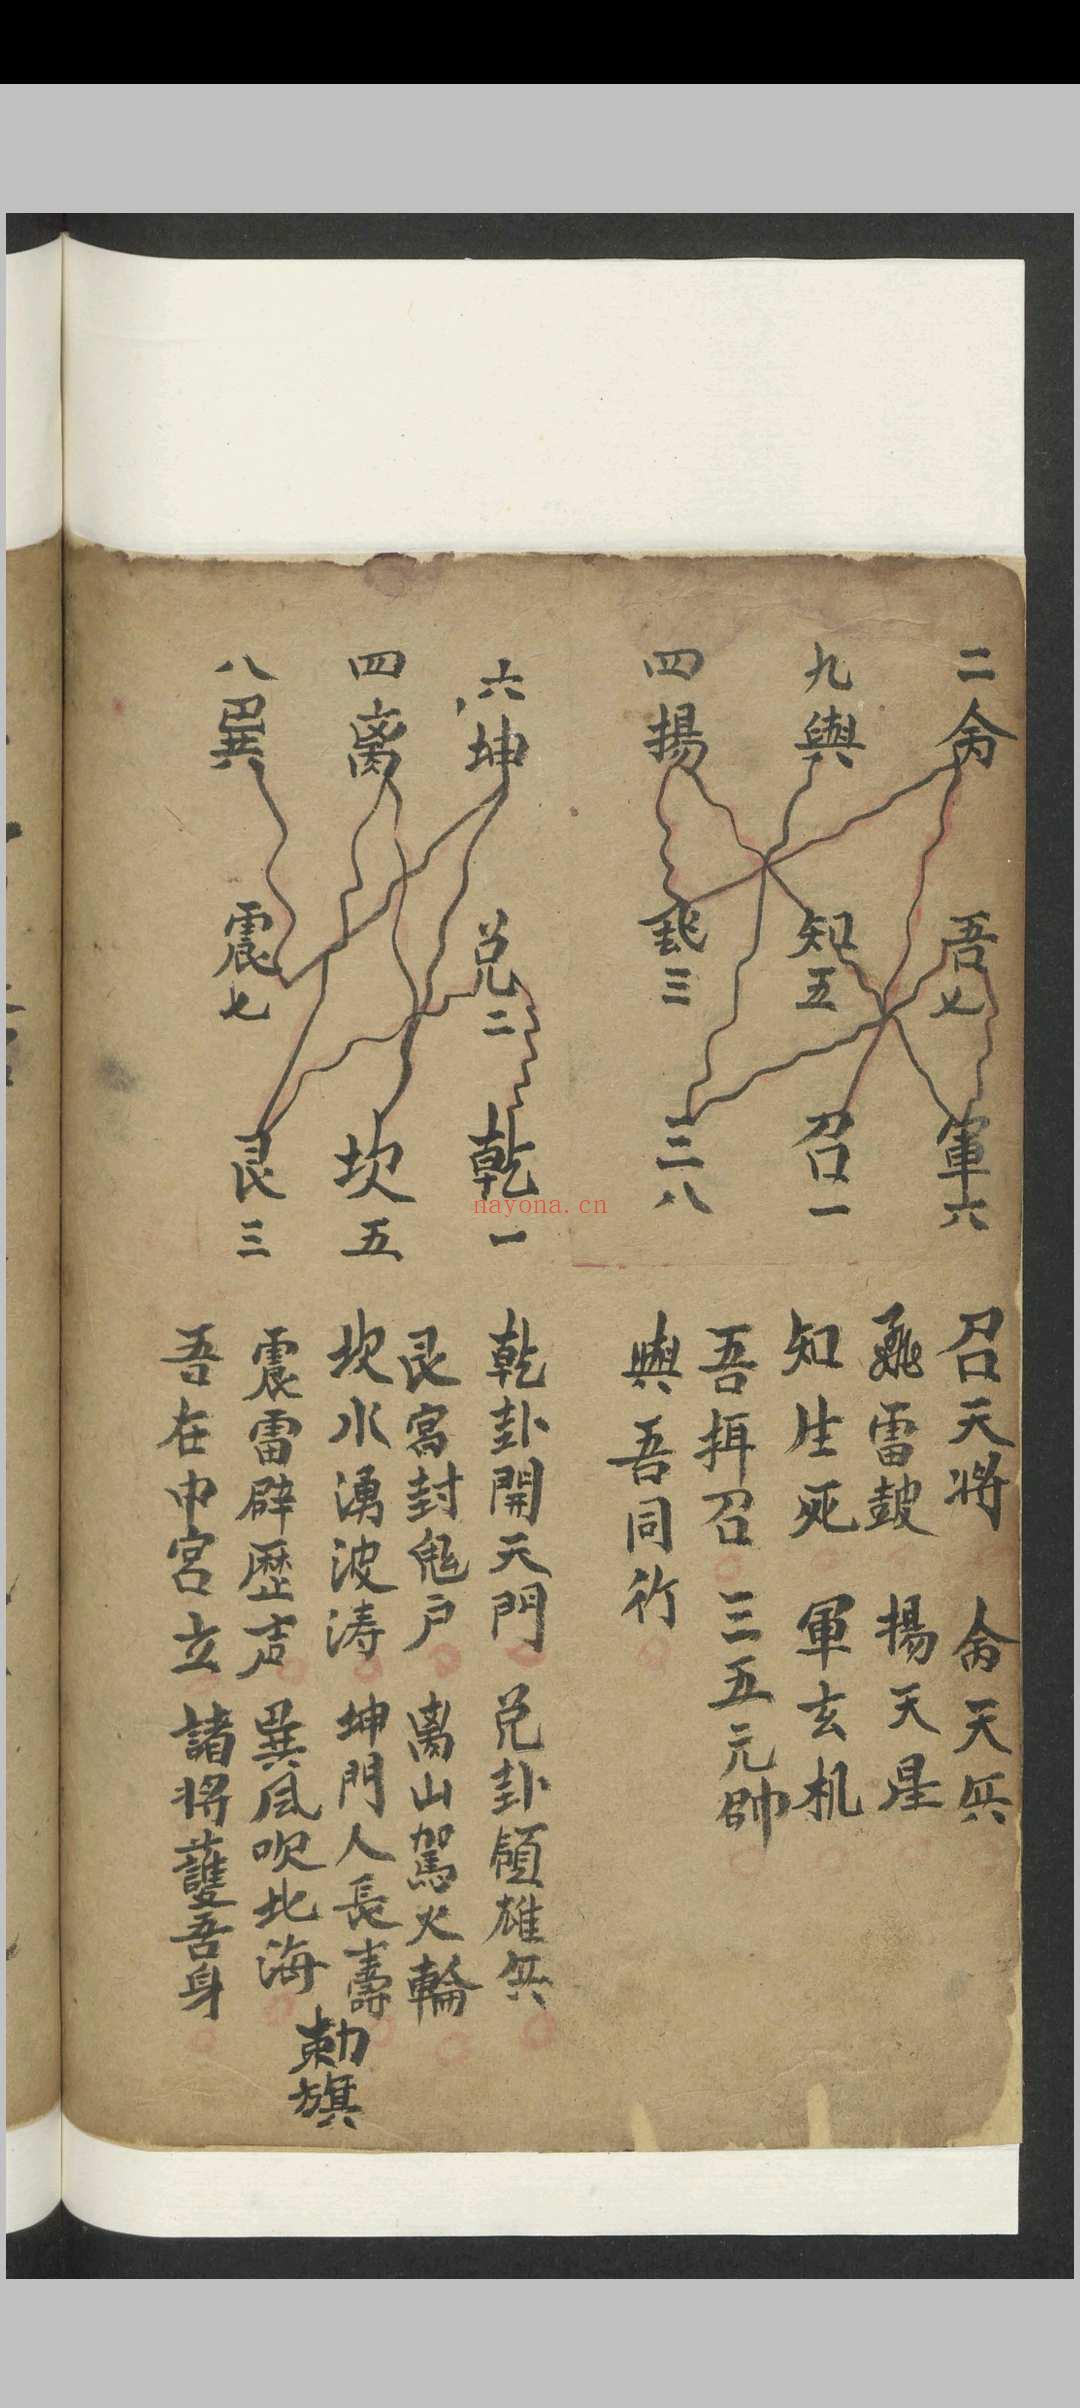 二 禽
九 與
四 揚
吾 七
知 五
三
軍 六
召 一
三 八
召天將 禽天兵
雷鼓 揚天星
知生死 軍玄机
吾揖召 三五元帥
與吾同行
六 坤
四 离
八 巽
兑 二
震 七
乾 一
坎 五
艮 三
乾卦開天門 兑卦領雄兵
艮宫封鬼户 离山駕火輪
坎水湧波涛 坤門人長壽
震雷辟歷声 巽风吹北海
吾在中宫立 諸將護吾身
勅旗
nayona.cn